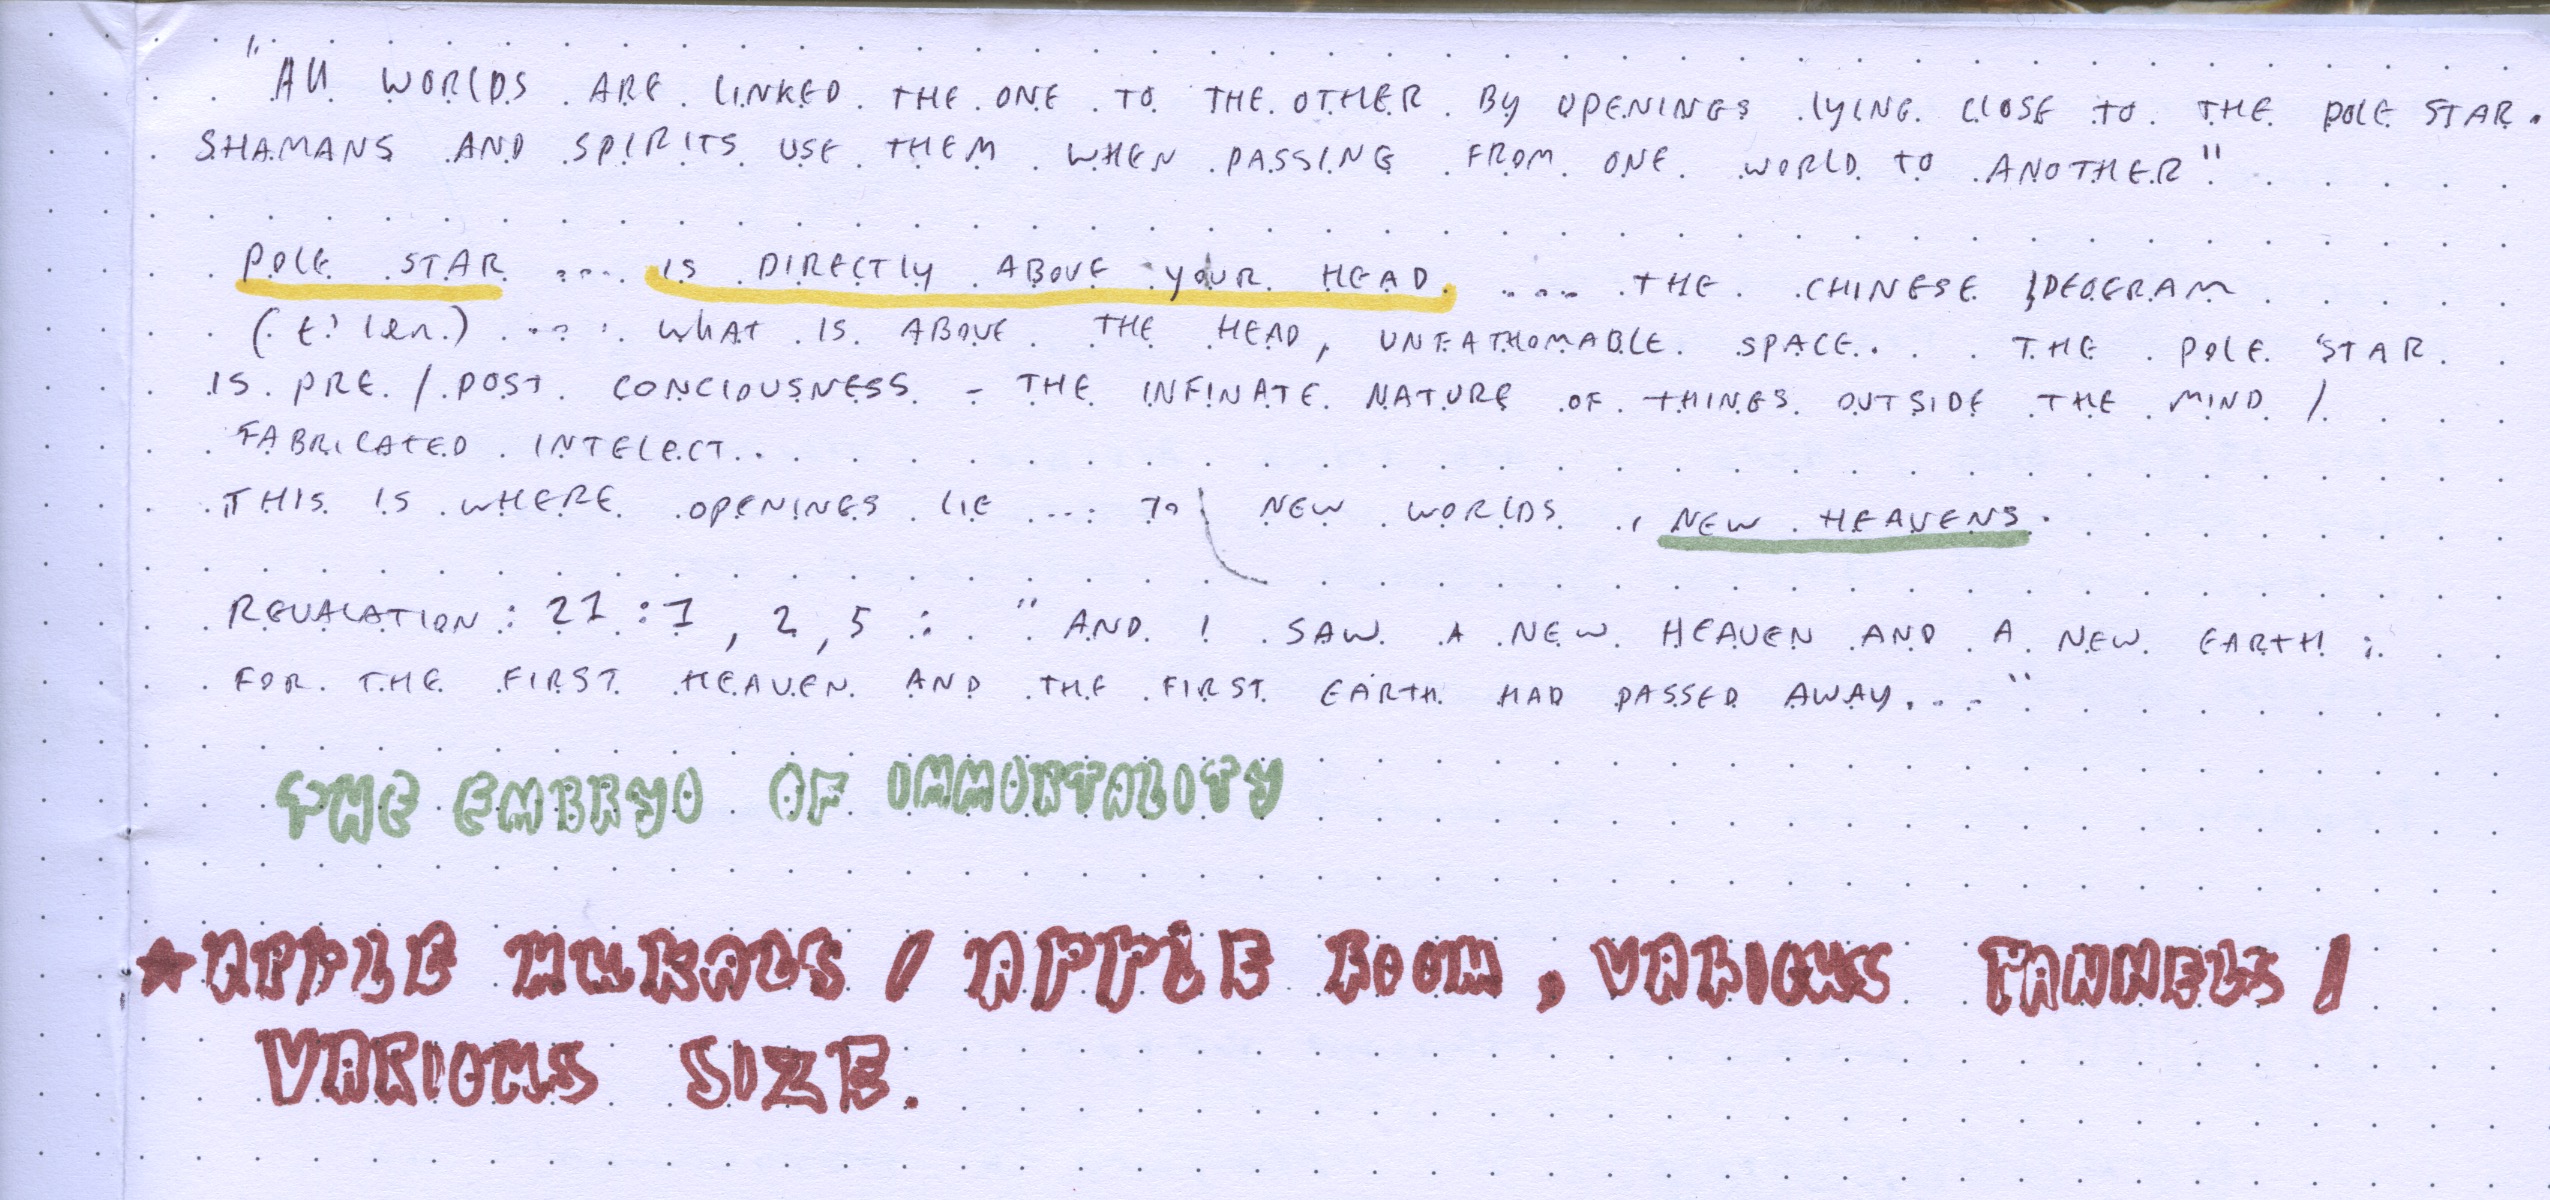 "All WORLDS ARE LINKED THE ONE TO THE OTHER BY OPENINGS LYING CLOSE TO THE POLE STAR.
SHAMANS AND SPIRITS USE THEM WHEN PASSING FROM ONE WORLD TO ANOTHER"
POLE STAR .... IS DIRECTLY ABOVE YOUR HEAD .... THE CHINESE IDEOGRAM
(t'ien) .... WHAT IS ABOVE THE HEAD, UNFATHOMABLE SPACE.. THE POLE STAR
IS PRE / POST CONCIOUSNESS - THE INFINATE NATURE OF THINGS OUTSIDE THE MIND /
FABRICATED INTELECT..
THIS IS WHERE OPENINGS LIE .... TO NEW WORLDS , NEW HEAVENS.
REVALATION : 21 : 1 , 2 , 5 : "AND I SAW A NEW HEAVEN AND A NEW EARTH ;
FOR THE FIRST HEAVEN AND THE FIRST EARTH HAD PASSED AWAY..."
THE EMBRYO OF IMMORTALITY
★ APPLE MURALS / APPLE ROOM , VARIOUS PANNELS /
VARIOUS SIZE.